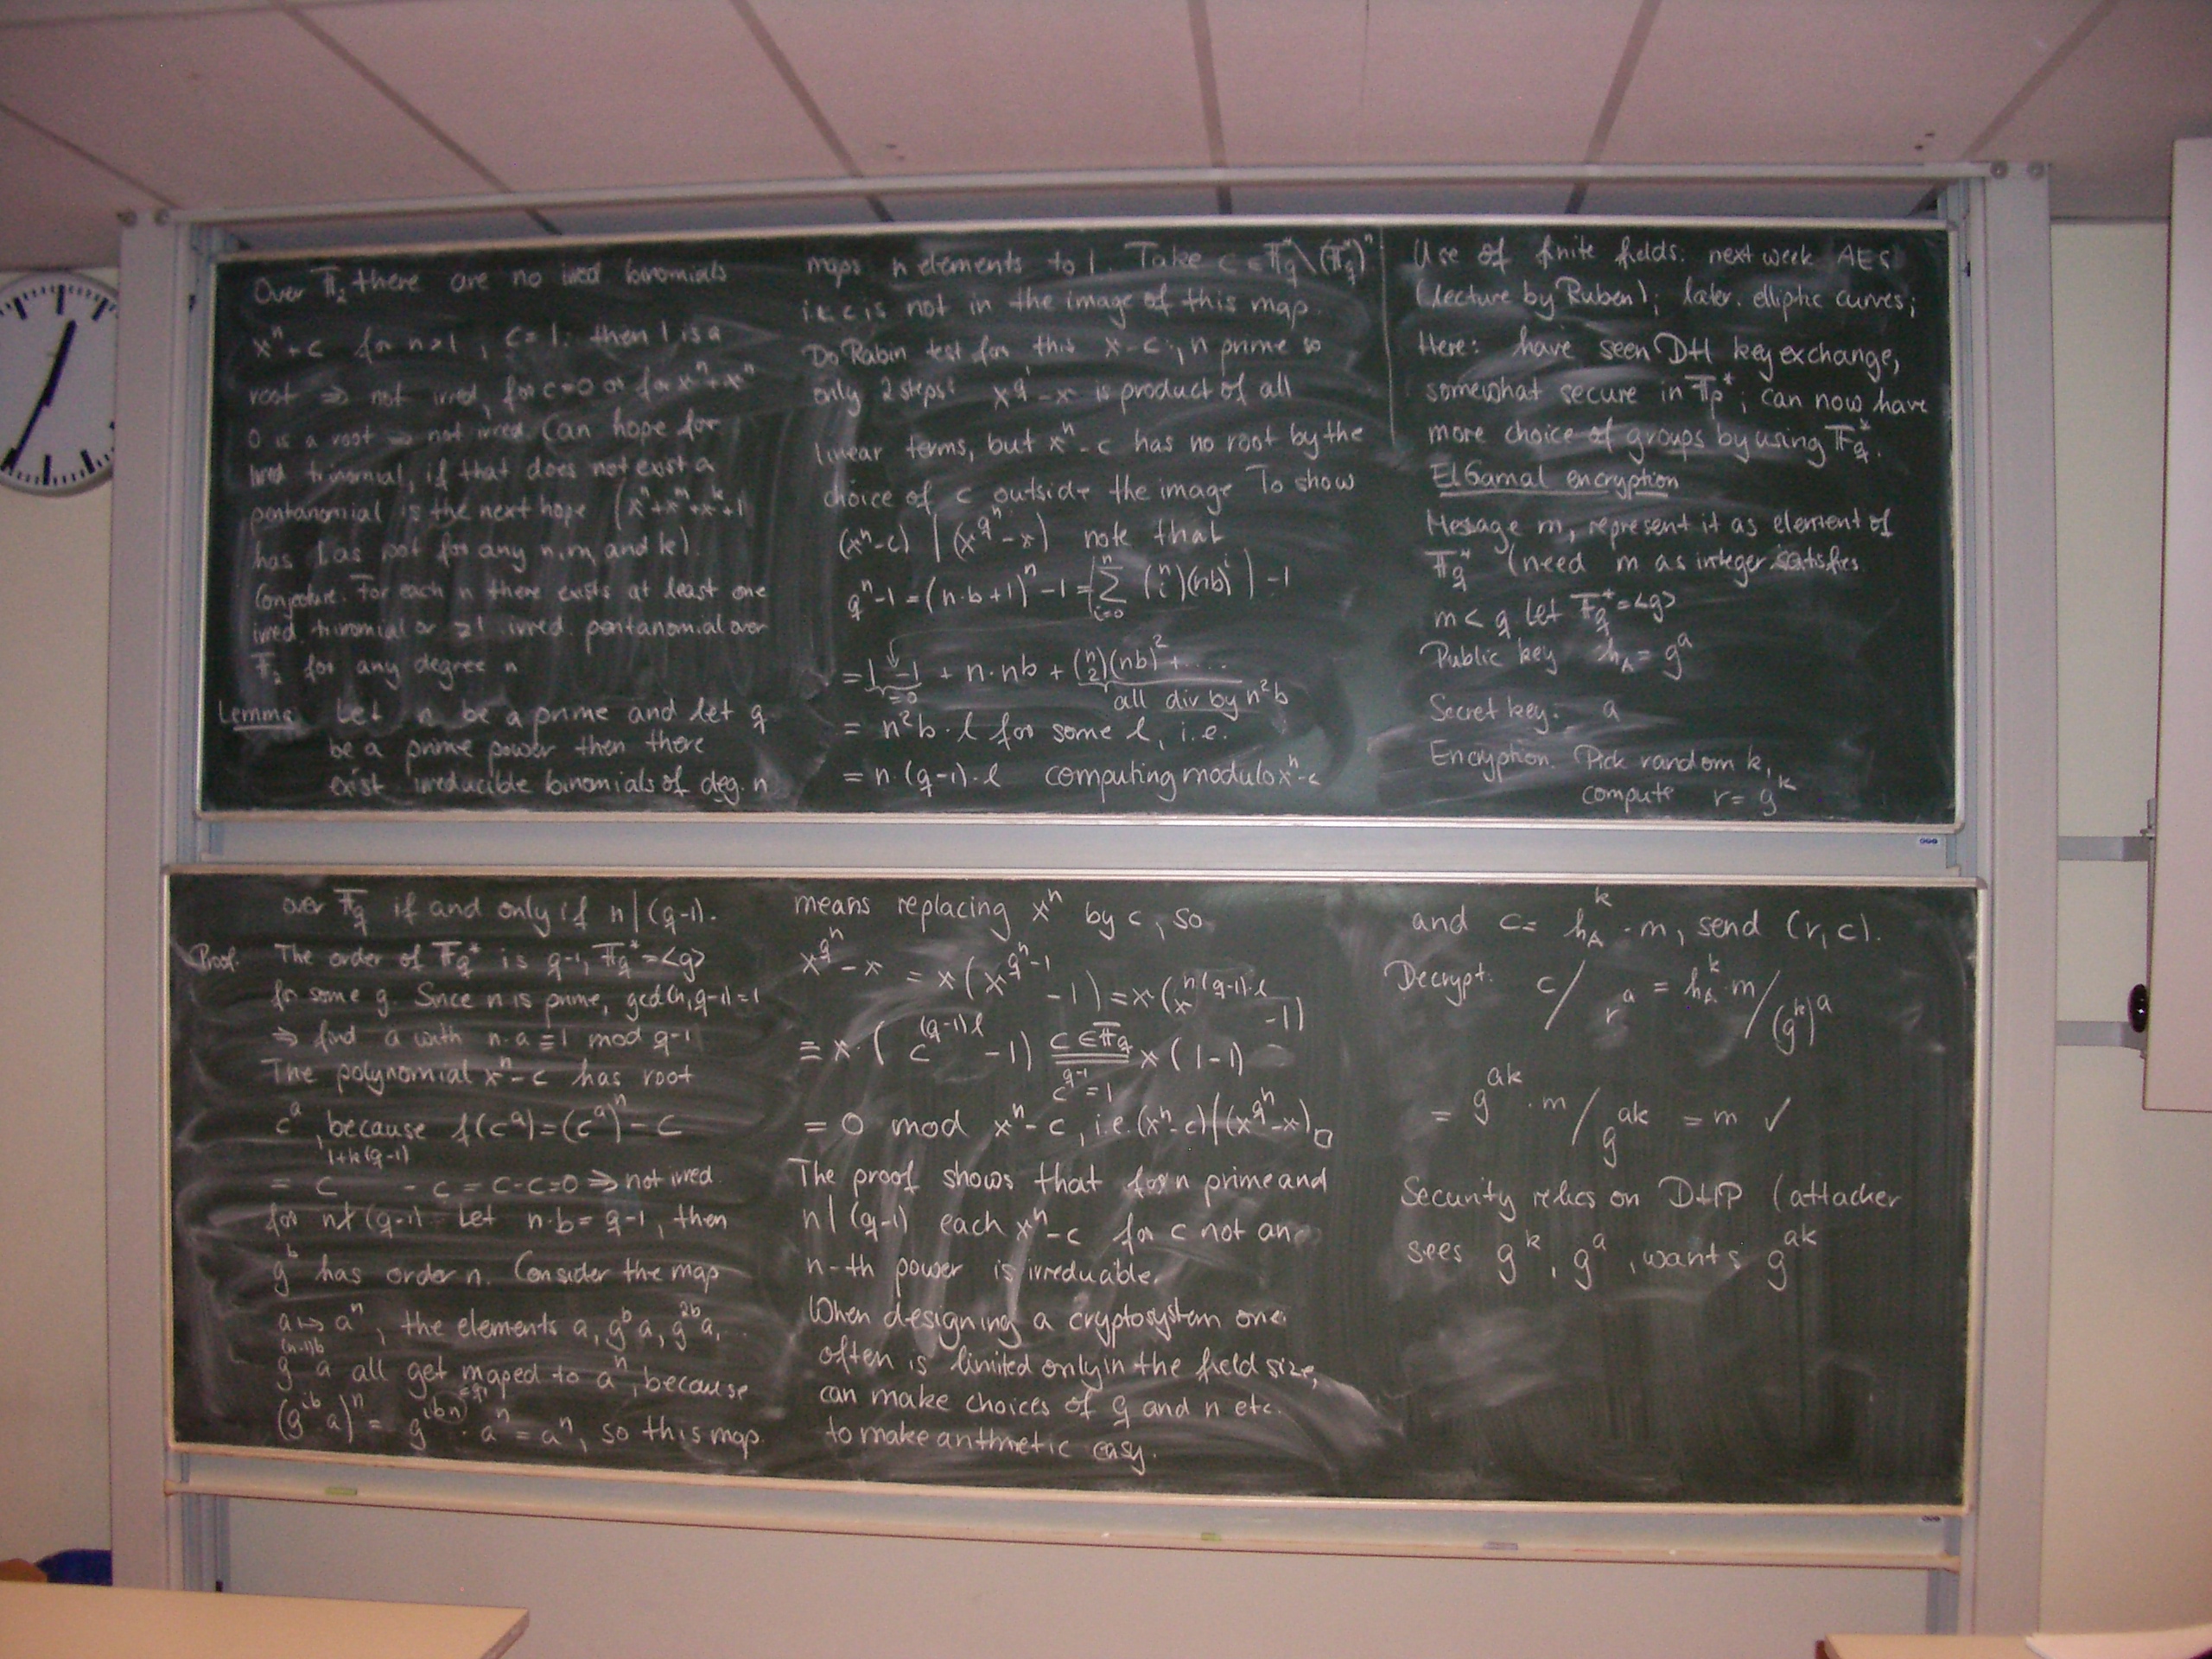 Over F₂ there are no irred binomials
xⁿ+c for n>1, c=1: then 1 is a
root ⇒ not irred, for c=0 or for xⁿ+xⁿ
0 is a root ⇒ not irred. Can hope for
irred trinomial, if that does not exist a
pentanomial is the next hope (xⁿ+x^m+x^k+1
has 1 as root for any n, m, and k).
Conjecture. For each n there exists at least one
irred. trinomial or ≥1 irred. pentanomial over
F₂ for any degree n
Lemma Let n be a prime and let q
be a prime power then there
exist irreducible binomials of deg. n
over F_q if and only if n|(q-1).
Proof. The order of F_q* is q-1, F_q*=<g>
for some g. Since n is prime, gcd(n,q-1)=1
⇒ find a with n·a≡1 mod q-1
The polynomial xⁿ-c has root
c^a, because f(c^a)=(c^a)ⁿ-c
= c^(1+k(q-1)) - c = c-c=0 ⇒ not irred.
for n∤(q-1). Let n·b=q-1, then
g^b has order n. Consider the map
a↦aⁿ, the elements a, g^b a, g^2b a, ..
g^(n-1)b a all get maped to aⁿ, because
(g^ib a)ⁿ = g^(ibn) · aⁿ = aⁿ, so this map
maps n elements to 1. Take c∈F_q*\(F_q*)ⁿ
i.e. c is not in the image of this map.
Do Rabin test for this xⁿ-c, n prime so
only 2 steps: x^q-x is product of all
linear terms, but xⁿ-c has no root by the
choice of c outside the image. To show
(xⁿ-c) | (x^qⁿ-x) note that
qⁿ-1=(n·b+1)ⁿ-1=(∑_{i=0}^n (n i)(nb)^i)-1
=1-1 + n·nb + (n 2)(nb)²+....
=0 all div by n²b
= n²b·l for some l, i.e.
= n·(q-1)·l computing modulo xⁿ-c
means replacing xⁿ by c, so
x^qⁿ-x = x(x^(qⁿ-1) -1)=x·(x^(n(q-1)·l) -1)
≡ x·(c^((q-1)l) -1) = x(1-1)
c∈F_q
c^(q-1)=1
= 0 mod xⁿ-c, i.e. (xⁿ-c)|(x^qⁿ-x) □
The proof shows that for n prime and
n|(q-1) each xⁿ-c for c not an
n-th power is irreducible.
When designing a cryptosystem one
often is limited only in the field size,
can make choices of q and n etc.
to make arithmetic easy.
Use of finite fields: next week AES
(lecture by Ruben); later: elliptic curves;
Here: have seen DH key exchange,
somewhat secure in F_p*; can now have
more choice of groups by using F_q*.
ElGamal encryption
Message m, represent it as element of
F_q* (need m as integer satisfies
m<q. Let F_q*=<g>
Public key h_A=g^a
Secret key: a
Encryption. Pick random k,
compute r= g^k
and c= h_A^k·m, send (r,c).
Decrypt: c/r^a = h_A^k·m/(g^k)^a
= g^ak·m/g^ak = m ✓
Security relies on DHP (attacker
sees g^k, g^a, wants g^ak